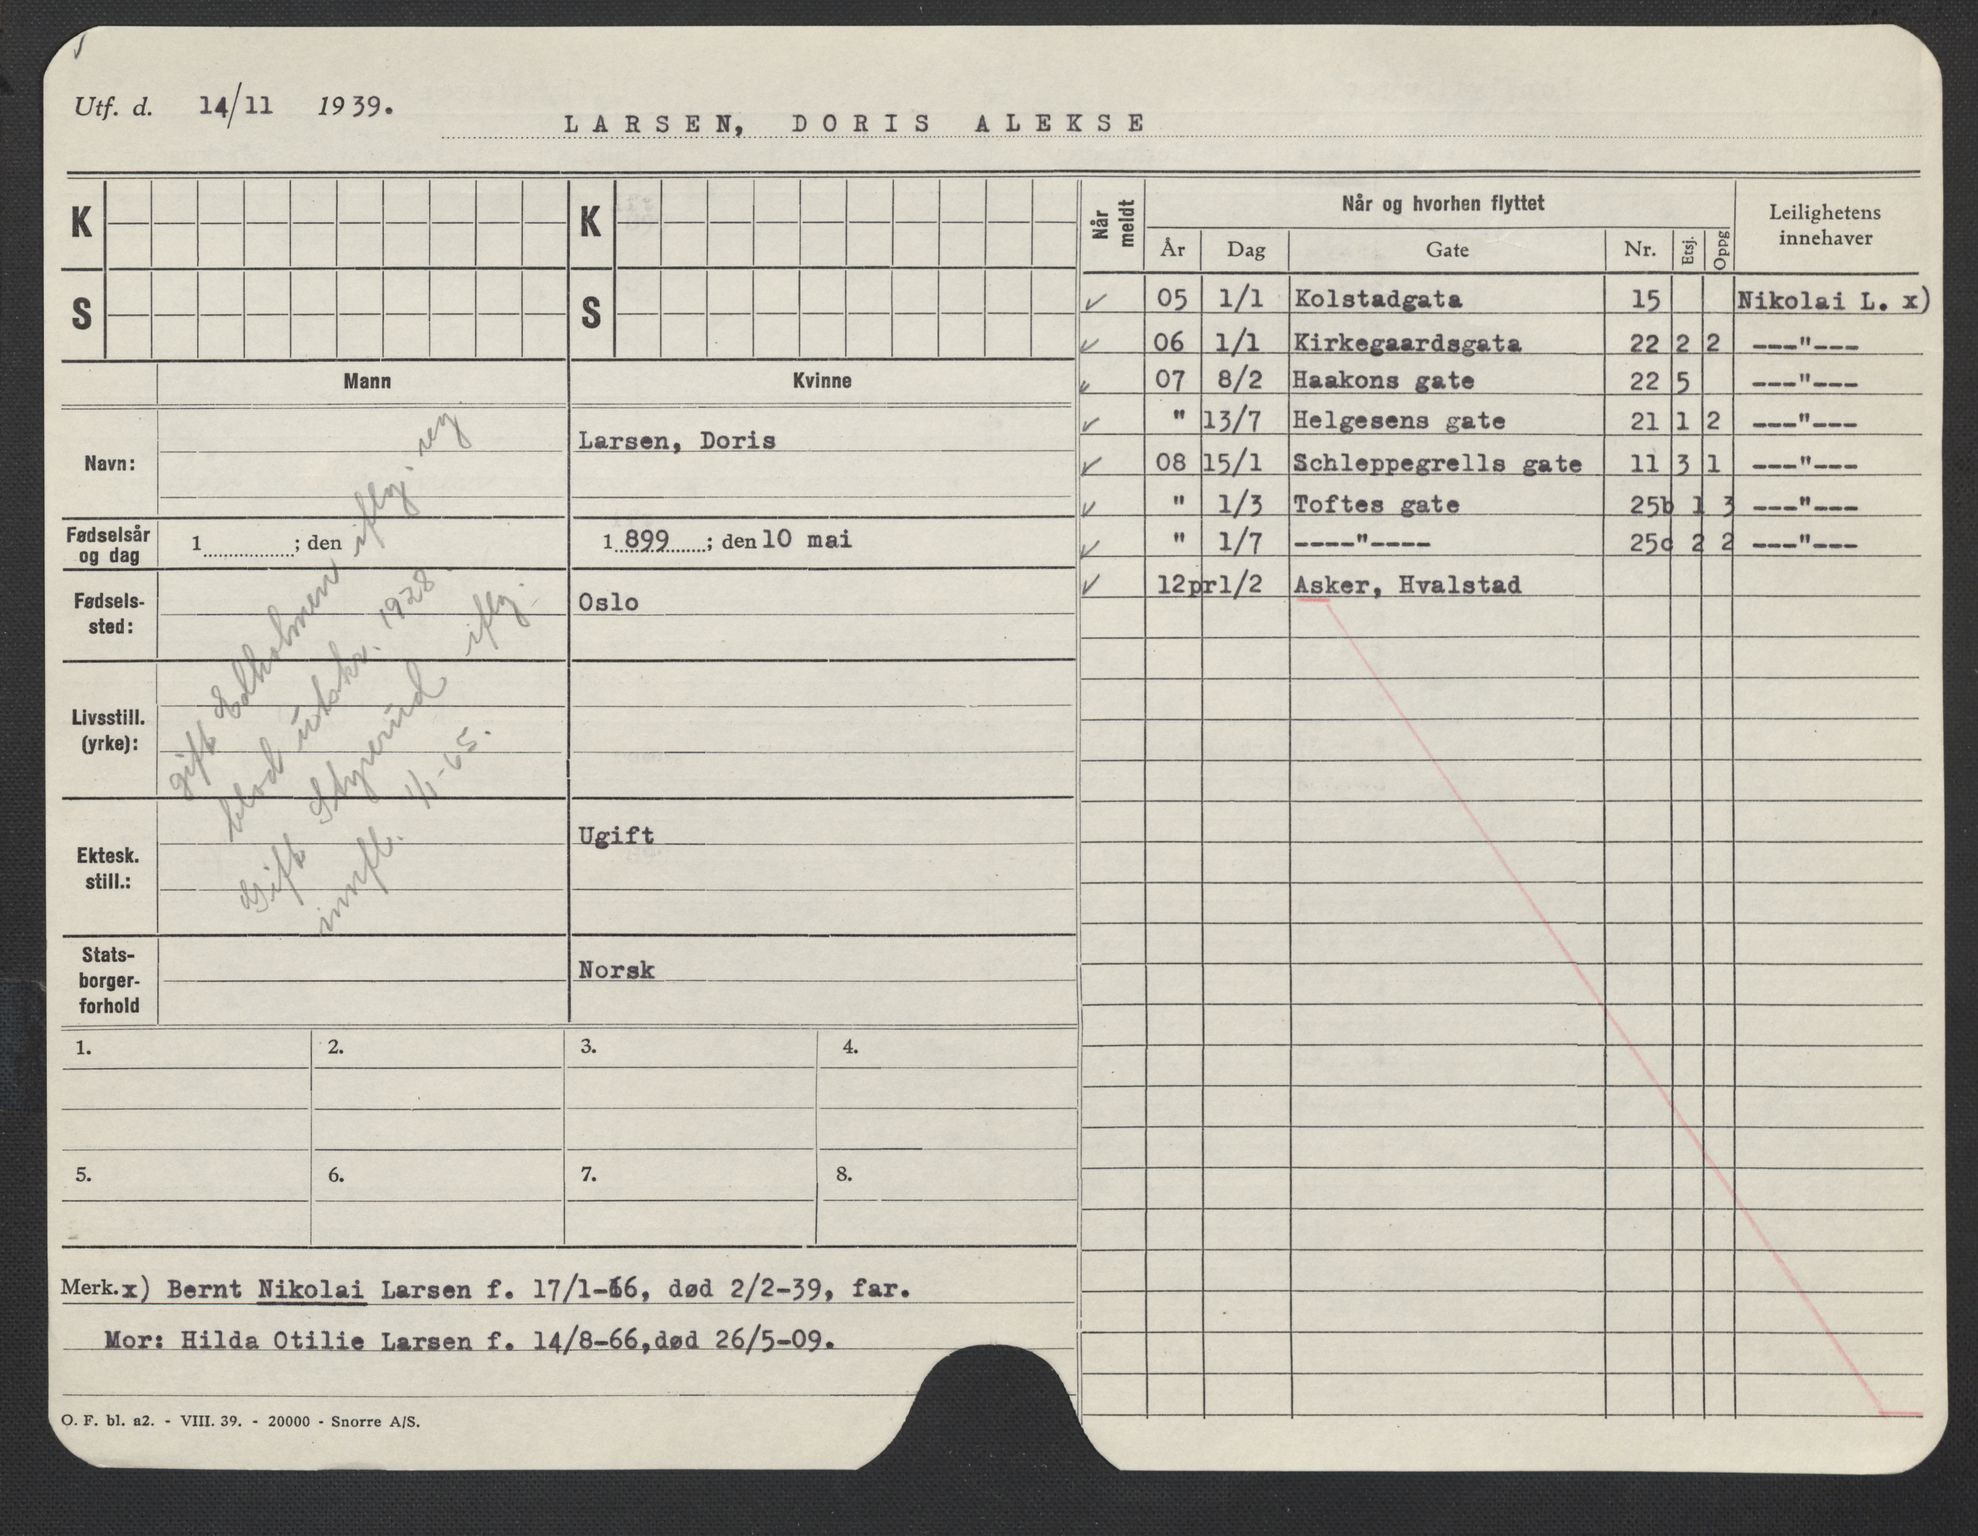 Utf. d. 14/11 1939.
LARSEN, DORIS ALEKSE
K
K
S
S
Mann
Kvinne
Navn:
Larsen, Doris
Fødselsår og dag
1 ; den
1 899 ; den 10 mai
Fødsels-
sted:
Oslo
Livsstill.
(yrke):
Ektesk.
still.:
Ugift
Stats-
borger-
forhold
Norsk
gift Edholmen iflg. reg
blod utskr. 1928.
Gift Styrerud iflg.
innfl. 1/1-65.
1. 2. 3. 4.
5. 6. 7. 8.
Merk. x) Bernt Nikolai Larsen f. 17/1-66, død 2/2-39, far.
Mor: Hilda Otilie Larsen f. 14/8-66, død 26/5-09.
O. F. bl. a2. - VIII. 39. - 20000 - Snorre A/S.
Når meldt
Når og hvorhen flyttet
Leilighetens
innehaver
År Dag Gate Nr. Etsj. Oppg
05 1/1 Kolstadgata 15 Nikolai L. x)
06 1/1 Kirkegaardsgata 22 2 2 ---"---
07 8/2 Haakons gate 22 5 ---"---
" 13/7 Helgesens gate 21 1 2 ---"---
08 15/1 Schleppegrells gate 11 3 1 ---"---
" 1/3 Toftes gate 25b 1 3 ---"---
" 1/7 ----"---- 25c 2 2 ---"---
12pr1/2 Asker, Hvalstad